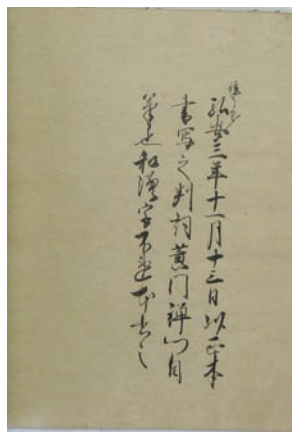 弘安三年十一月十三日以正本
書写之判詞黄門禅門自
筆也和漢字不違本書之